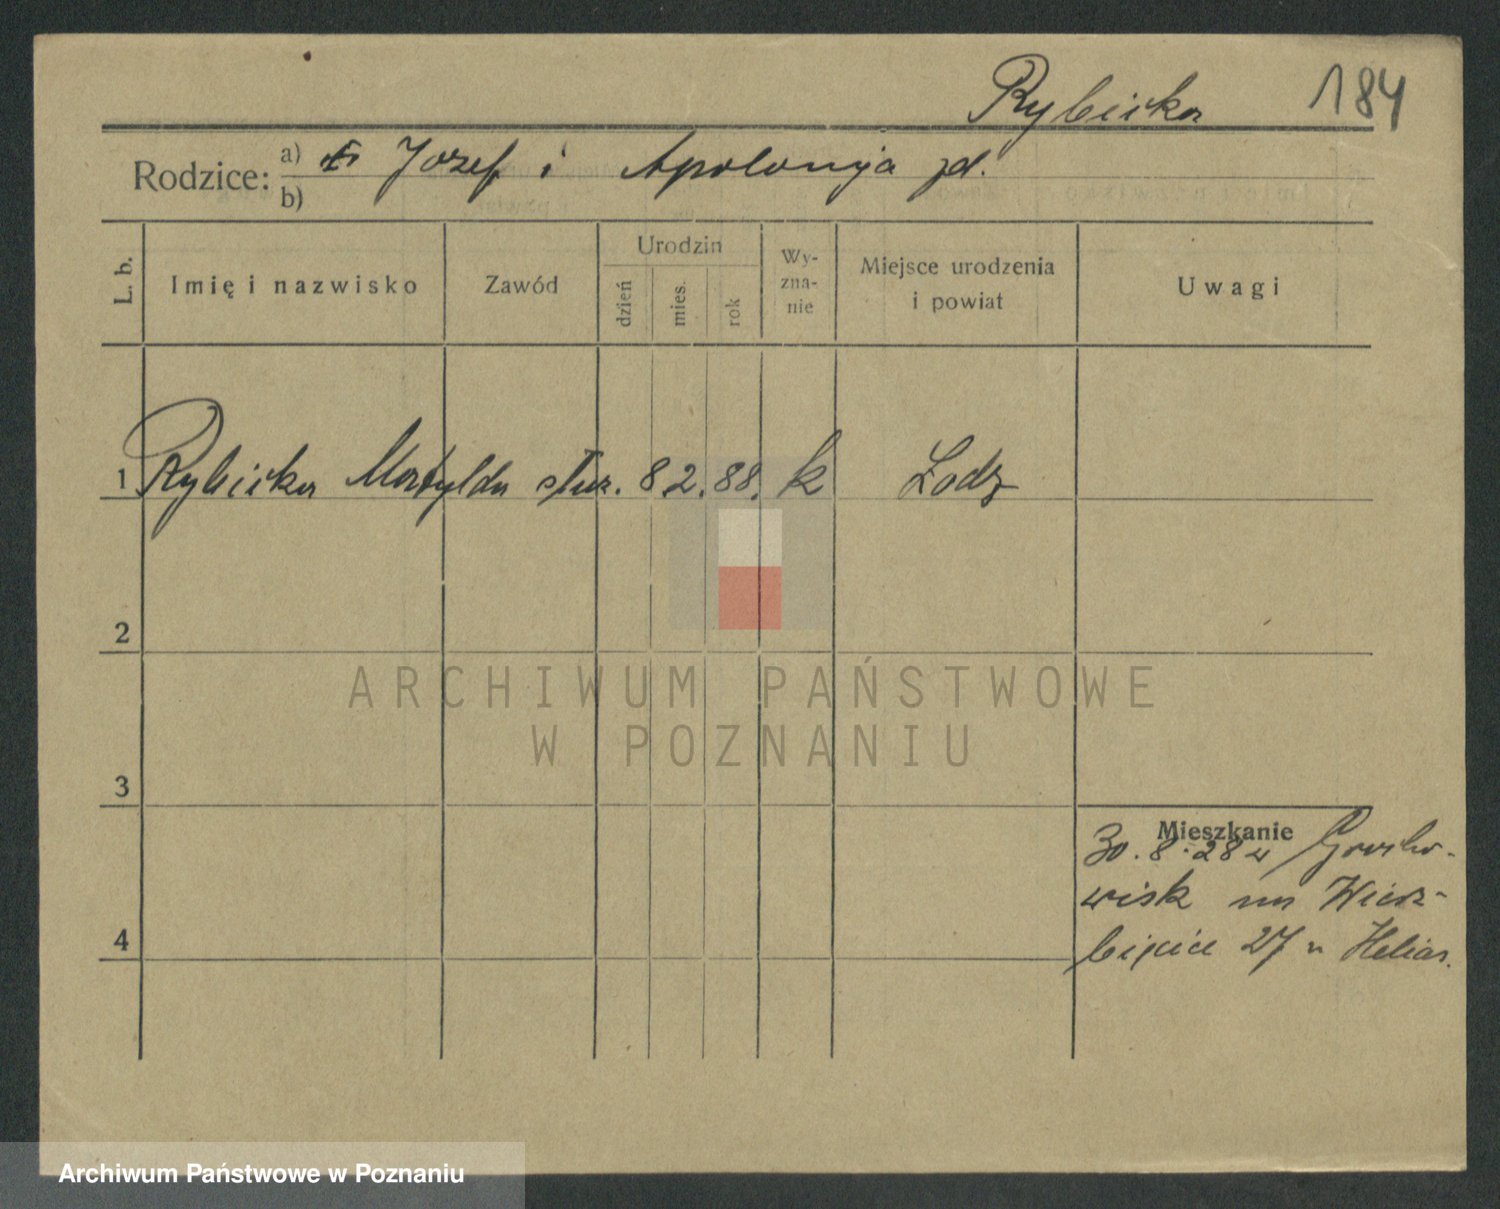 Rybicka 184
Rodzice: a) Jozef i Apolonja zd.
b)
L. b. Imię i nazwisko Zawód Urodzin dzień mies. rok Wy-zna-nie Miejsce urodzenia i powiat Uwagi
1 Rybicka Matylda służ. 8.2.88. k Lodz
2
3
4
Mieszkanie
30.8.28 w Grocho-
wisk na Wierz-
bięcice 27 u Helias.
ARCHIWUM PAŃSTWOWE
W POZNANIU
Archiwum Państwowe w Poznaniu